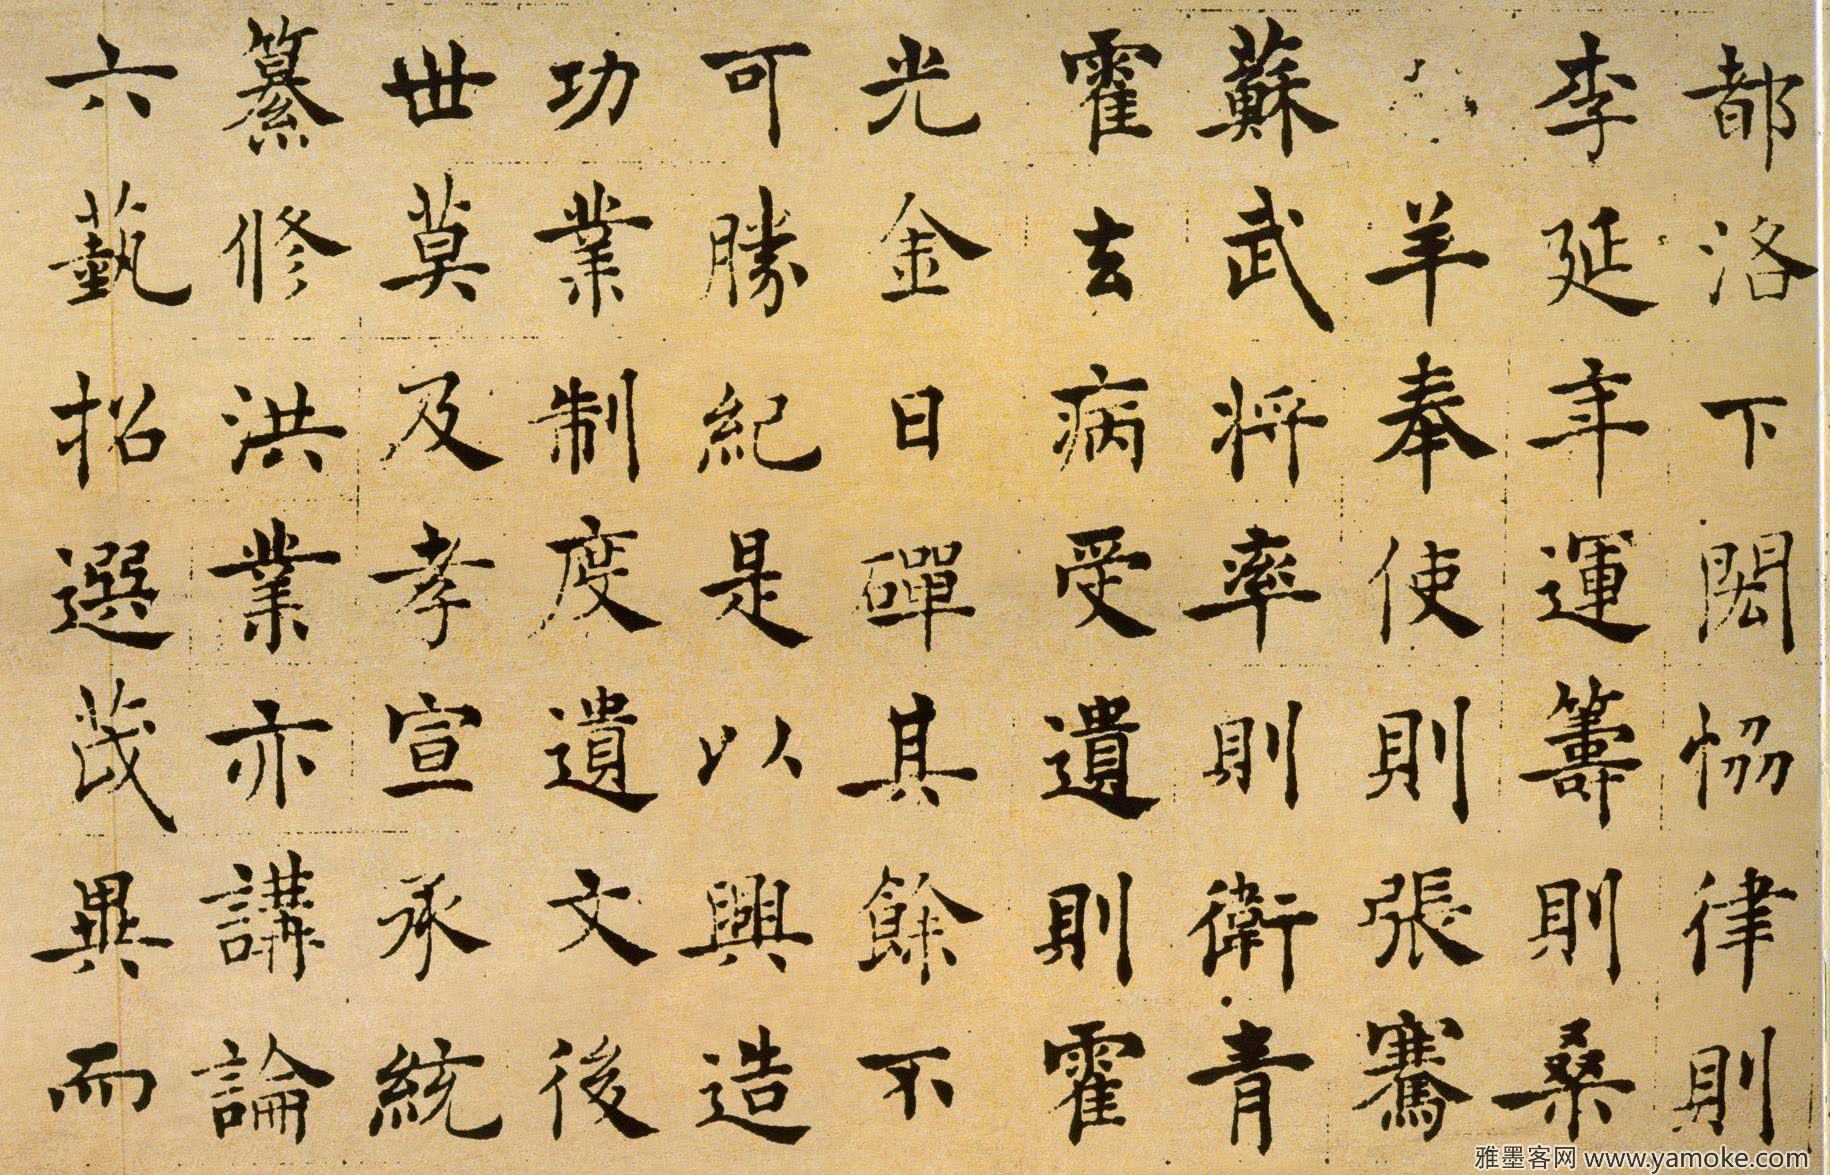 都洛下閎協律則
李延年運籌則桑
羊奉使則張騫
蘇武將率則衛青
霍去病受遺則霍
光金日磾其餘不
可勝紀是以興造
功業制度遺文後
世莫及孝宣承統
纂修洪業亦講論
六藝招選茂異而
雅墨客网 www.yamoke.com